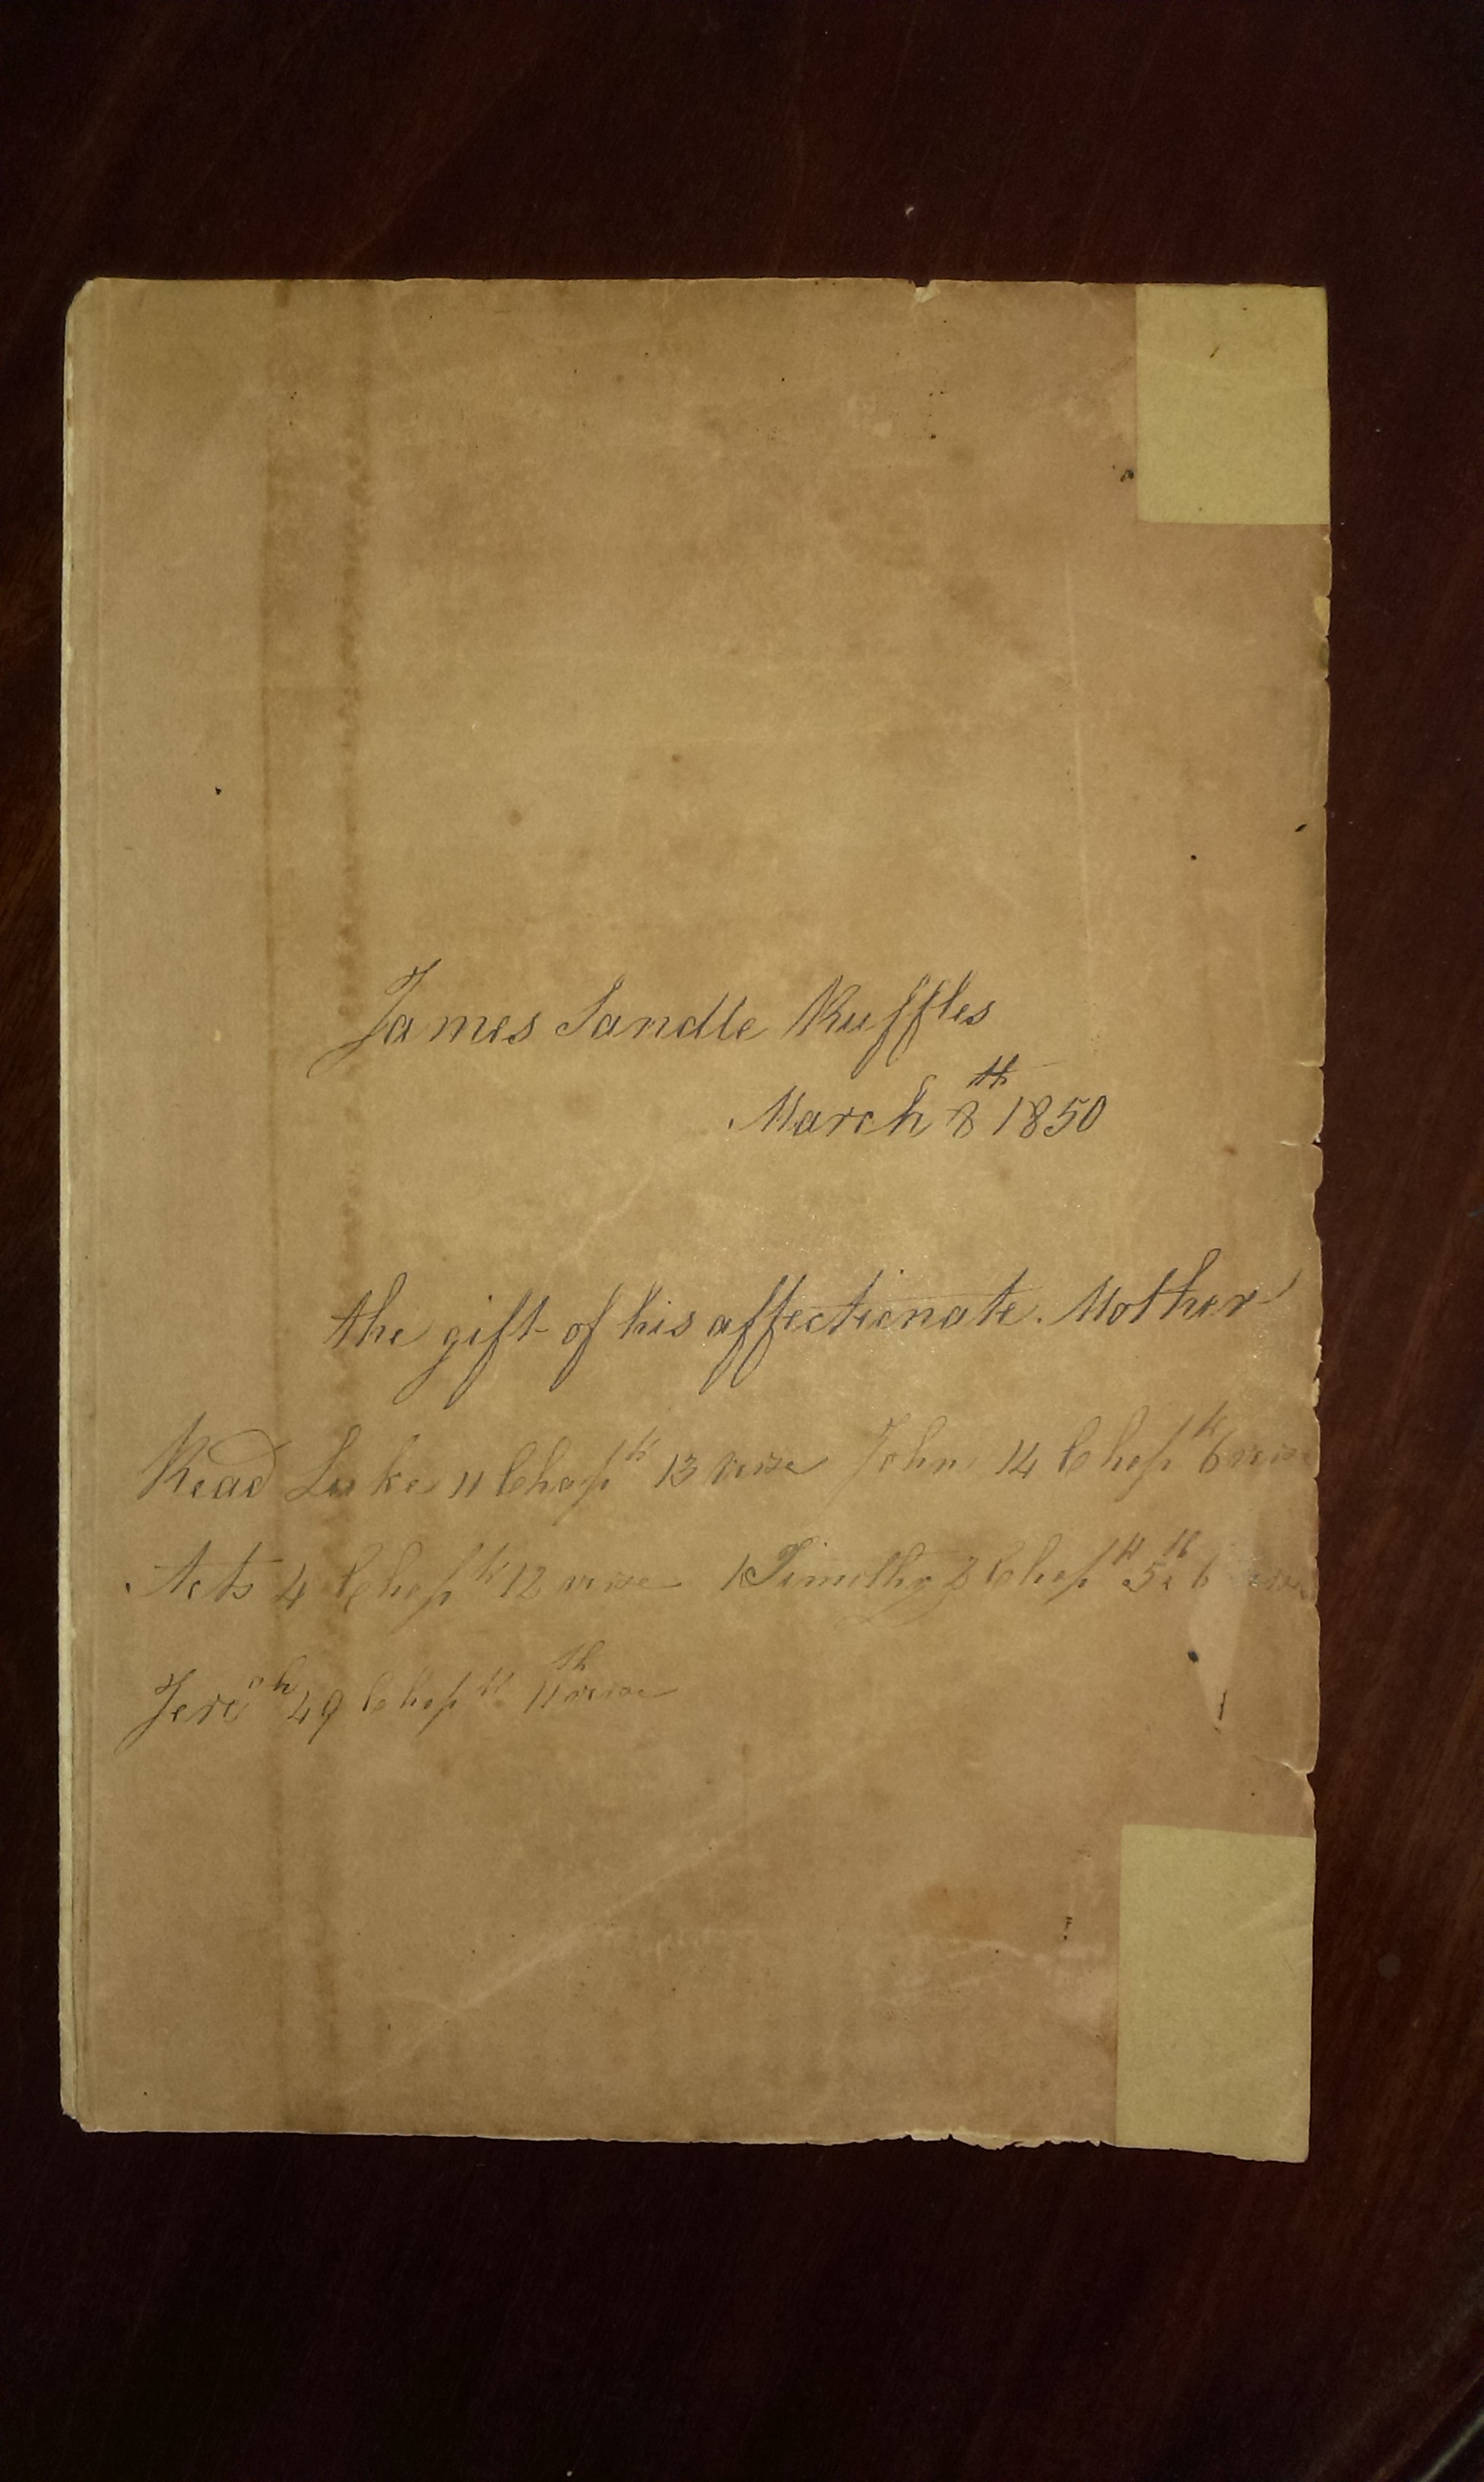 James Sandle Ruffles
March 8th 1850
the gift of his affectionate Mother
Read Luke 11 Chapr 13 verse John 14 Chapr 6 verse
Acts 4 Chapr 12 verse 1 Timothy 2 Chapr 5 & 6 verse
Jereh 49 Chapr 11th verse